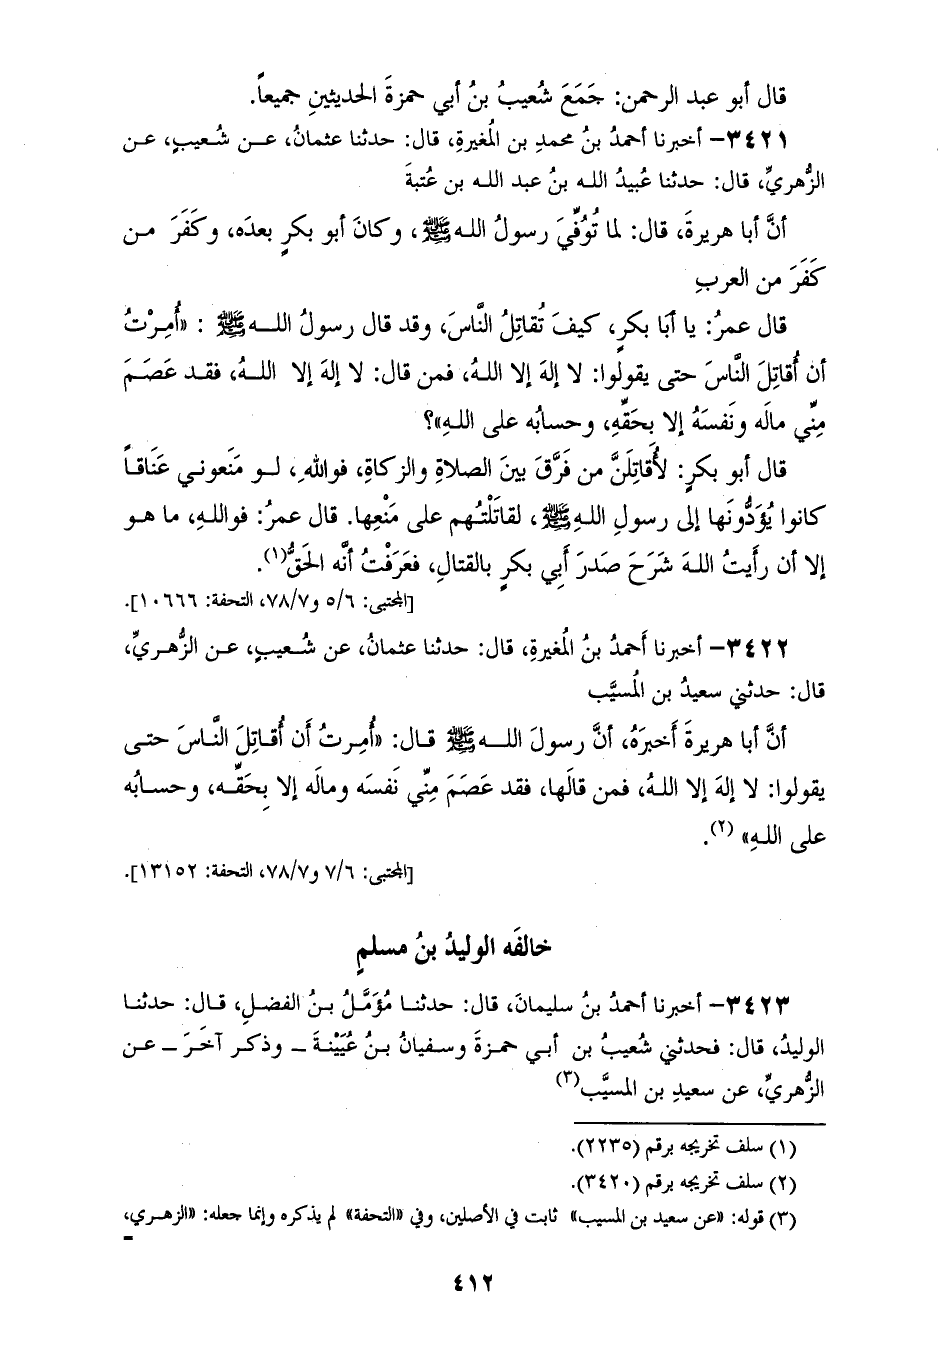 قال أبو عبد الرحمن: جَمَعَ شُعيبُ بنُ أبي حمزةَ الحديثينِ جميعاً.
٣٤٢١- أخبرنا أحمدُ بنُ محمدِ بن المُغيرةِ، قال: حدثنا عثمانُ، عن شُعيبٍ، عن
الزُّهريِّ، قال: حدثنا عُبيدُ الله بنُ عبد الله بن عُتبةَ
أنَّ أبا هريرةَ، قال: لما تُوُفِّيَ رسولُ اللهِ ﷺ، وكانَ أبو بكرٍ بعدَه، وكَفَرَ من
كَفَرَ من العربِ
قال عمرُ: يا أبَا بكرٍ، كيفَ تُقاتِلُ النَّاسَ، وقد قال رسولُ اللهِ ﷺ : «أُمِرْتُ
أن أُقاتِلَ النَّاسَ حتى يقولوا: لا إلهَ إلا اللهُ، فمن قال: لا إلهَ إلا اللهُ، فقد عَصَمَ
مِنِّي مالَه ونَفسَهُ إلا بِحَقِّهِ، وحسابُه على اللهِ»؟
قال أبو بكرٍ: لأُقَاتِلَنَّ من فَرَّقَ بينَ الصلاةِ والزكاةِ، فواللهِ، لو مَنَعوني عَنَاقاً
كانوا يُؤَدُّونَها إلى رسولِ اللهِ ﷺ، لقاتَلْتُهم على مَنْعِها. قال عمرُ: فواللهِ، ما هو
إلا أن رأيتُ اللهَ شَرَحَ صَدرَ أبي بكرٍ بالقتالِ، فعَرَفْتُ أنَّه الحَقُّ(١).
[المجتبى: ٥/٦ و٧٨/٧، التحفة: ١٠٦٦٦].
٣٤٢٢- أخبرنا أَحمدُ بنُ المُغيرةِ، قال: حدثنا عثمانُ، عن شُعيبٍ، عن الزُّهريِّ،
قال: حدثني سعيدُ بن المُسيَّب
أنَّ أبا هريرةَ أَخبرَهُ، أنَّ رسولَ اللهِ ﷺ قال: «أُمِرتُ أن أُقاتِلَ النَّاسَ حتى
يقولوا: لا إلهَ إلا اللهُ، فمن قالَها، فقد عَصَمَ مِنِّي نَفسَه ومالَه إلا بِحَقِّه، وحسابُه
على اللهِ» (٢).
[المجتبى: ٧/٦ و٧٨/٧، التحفة: ١٣١٥٢].
خالفَه الوليدُ بنُ مسلمٍ
٣٤٢٣- أخبرنا أحمدُ بنُ سليمانَ، قال: حدثنا مُؤَمَّلُ بنُ الفضلِ، قال: حدثنا
الوليدُ، قال: فحدثني شُعيبُ بن أبي حمزةَ وسفيانُ بنُ عُيَيْنةَ - وذكر آخَرَ - عن
الزُّهريِّ، عن سعيدِ بن المسيَّب(٣)
(١) سلف تخريجه برقم (٢٢٣٥).
(٢) سلف تخريجه برقم (٣٤٢٠).
(٣) قوله: «عن سعيد بن المسيب» ثابت في الأصلين، وفي «التحفة» لم يذكره وإنما جعله: «الزهري،
٤١٢